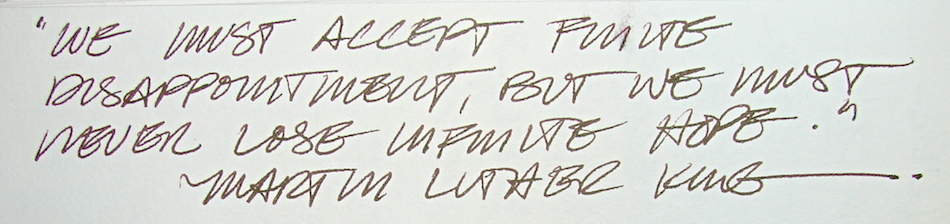 "WE MUST ACCEPT FINITE
DISAPPOINTMENT, BUT WE MUST
NEVER LOSE INFINITE HOPE."
~MARTIN LUTHER KING